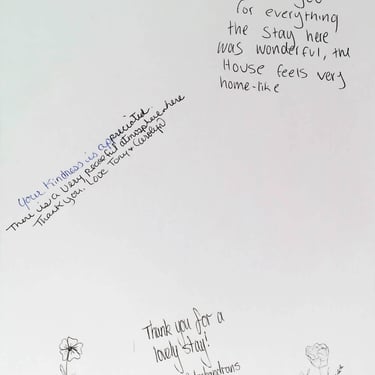 you
for everything
the stay here
was wonderful, the
House feels very
home-like
Your Kindness is appreciated.
There is a very peaceful atmosphere here
Thank you. Love Tony & Carolyn
Thank you for a
lovely stay!